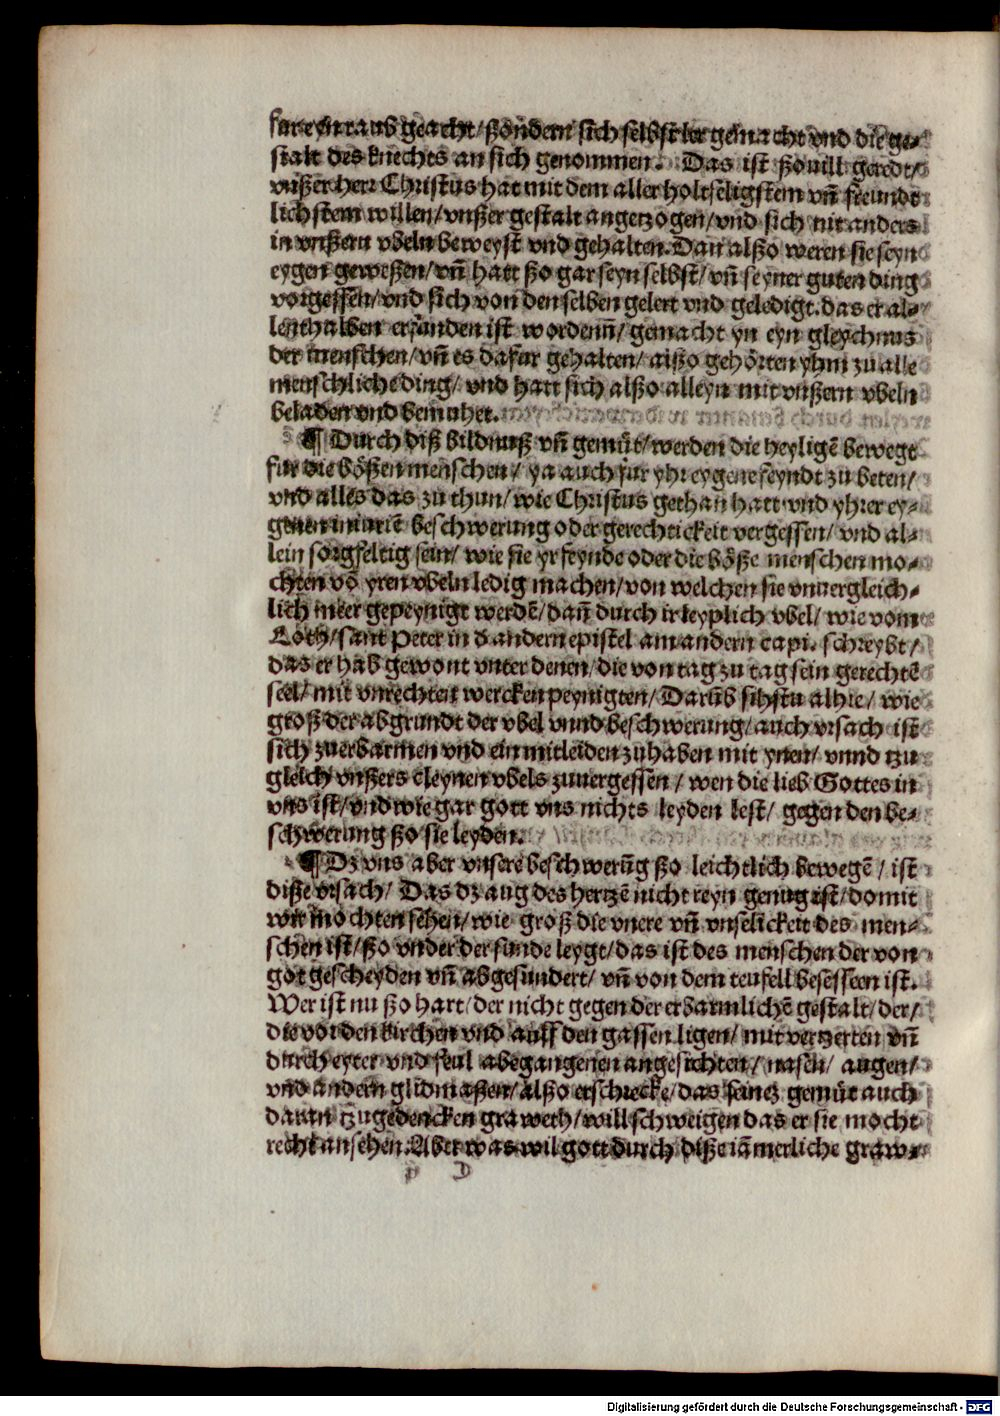 fur eyn raub geacht/ ßondern sich selbst ler gemacht vnd die ge⸗
stalt des knechts an sich genommen. Das ist ßouill geredt/
vnßer herr Christus hat mit dem aller holtseligstem vñ freundt
lichstem willen/ vnßer gestalt angetzogen/ vnd sich nit anders
in vnßern vbeln beweyst vnd gehalten. Dan alßo weren sie seyn
eygen geweßen/ vñ hatt ßo gar seyn selbst/ vñ seyner guten ding
vorgessen/ vnd sich von den selben gelert vnd geledigt. das er al⸗
lenthalben erfunden ist wordenn/ gemacht yn eyn gleychnus
der menschen/ vñ es dafur gehalten/ alßo gehörten yhm zu alle
menschliche ding/ vnd hatt sich alßo alleyn mit vnßern vbeln
beladen vnd bemuhet.
¶ Durch diß bildnuß vñ gemüt/ werden die heyligē bewegt
fur die bößen menschen/ ya auch fur yhr eygene feyndt zu beten/
vnd alles das zu thun/ wie Christus gethan hatt vnd yhrer ey⸗
genen iniuriē beschwerung oder gerechtickeit vergessen/ vnd al⸗
lein sorgfeltig sein/ wie sie yr feynde oder die böße menschen mo⸗
chten vō yren vbeln ledig machen/ von welchen sie vnuergleich⸗
lich meer gepeynigt werdē/ dañ durch ir leyplich vbel/ wie vom
Loth/ sant Peter in d andern epistel am andern capi. schreybt/
das er hab gewont vnter denen/ die von tag zu tag sein gerechtē
seel/ mit vnrechten wercken peynigten/ Darūb sihstu alhie/ wie
groß der abgrundt der vbel vnnd beschwerung/ auch vrsach ist
sich zuerbarmen vnd ein mitleiden zuhaben mit ynen/ vnnd tzu
gleich vnßers cleynen vbels zuuergessen/ wen die lieb Gottes in
vns ist/ vnd wie gar gott vns nichts leyden lest/ gegen den be⸗
schwerung ßo sie leyden.
¶ Dz vns aber vnsere beschwerūg ßo leichtlich bewegē/ ist
diße vrsach/ Das dz aug des hertzē nicht reyn genug ist/ domit
wir mochten sehen/ wie groß die vnere vñ vnselickeit des men⸗
schen ist/ ßo vnder der sunde leygt/ das ist des menschen der von
got gescheyden vñ abgesundert/ vñ von dem teufell besesseen ist.
Wer ist nu ßo hart/ der nicht gegen der erbarmlichē gestalt/ der/
die vor den kirchen vnd auff den gassen ligen/ mit vertzerten vñ
durch eyter vnd feul abegangenen angesichten/ nasen/ augen/
vnd andern glidmaßen/ alßo erschrecke/ das seinez gemüt auch
daran tzugedencken graweth/ will schweigen das er sie mocht
recht ansehen. Aber was wil gott durch diße iāmerliche graw⸗
D
Digitalisierung gefördert durch die Deutsche Forschungsgemeinschaft - DFG